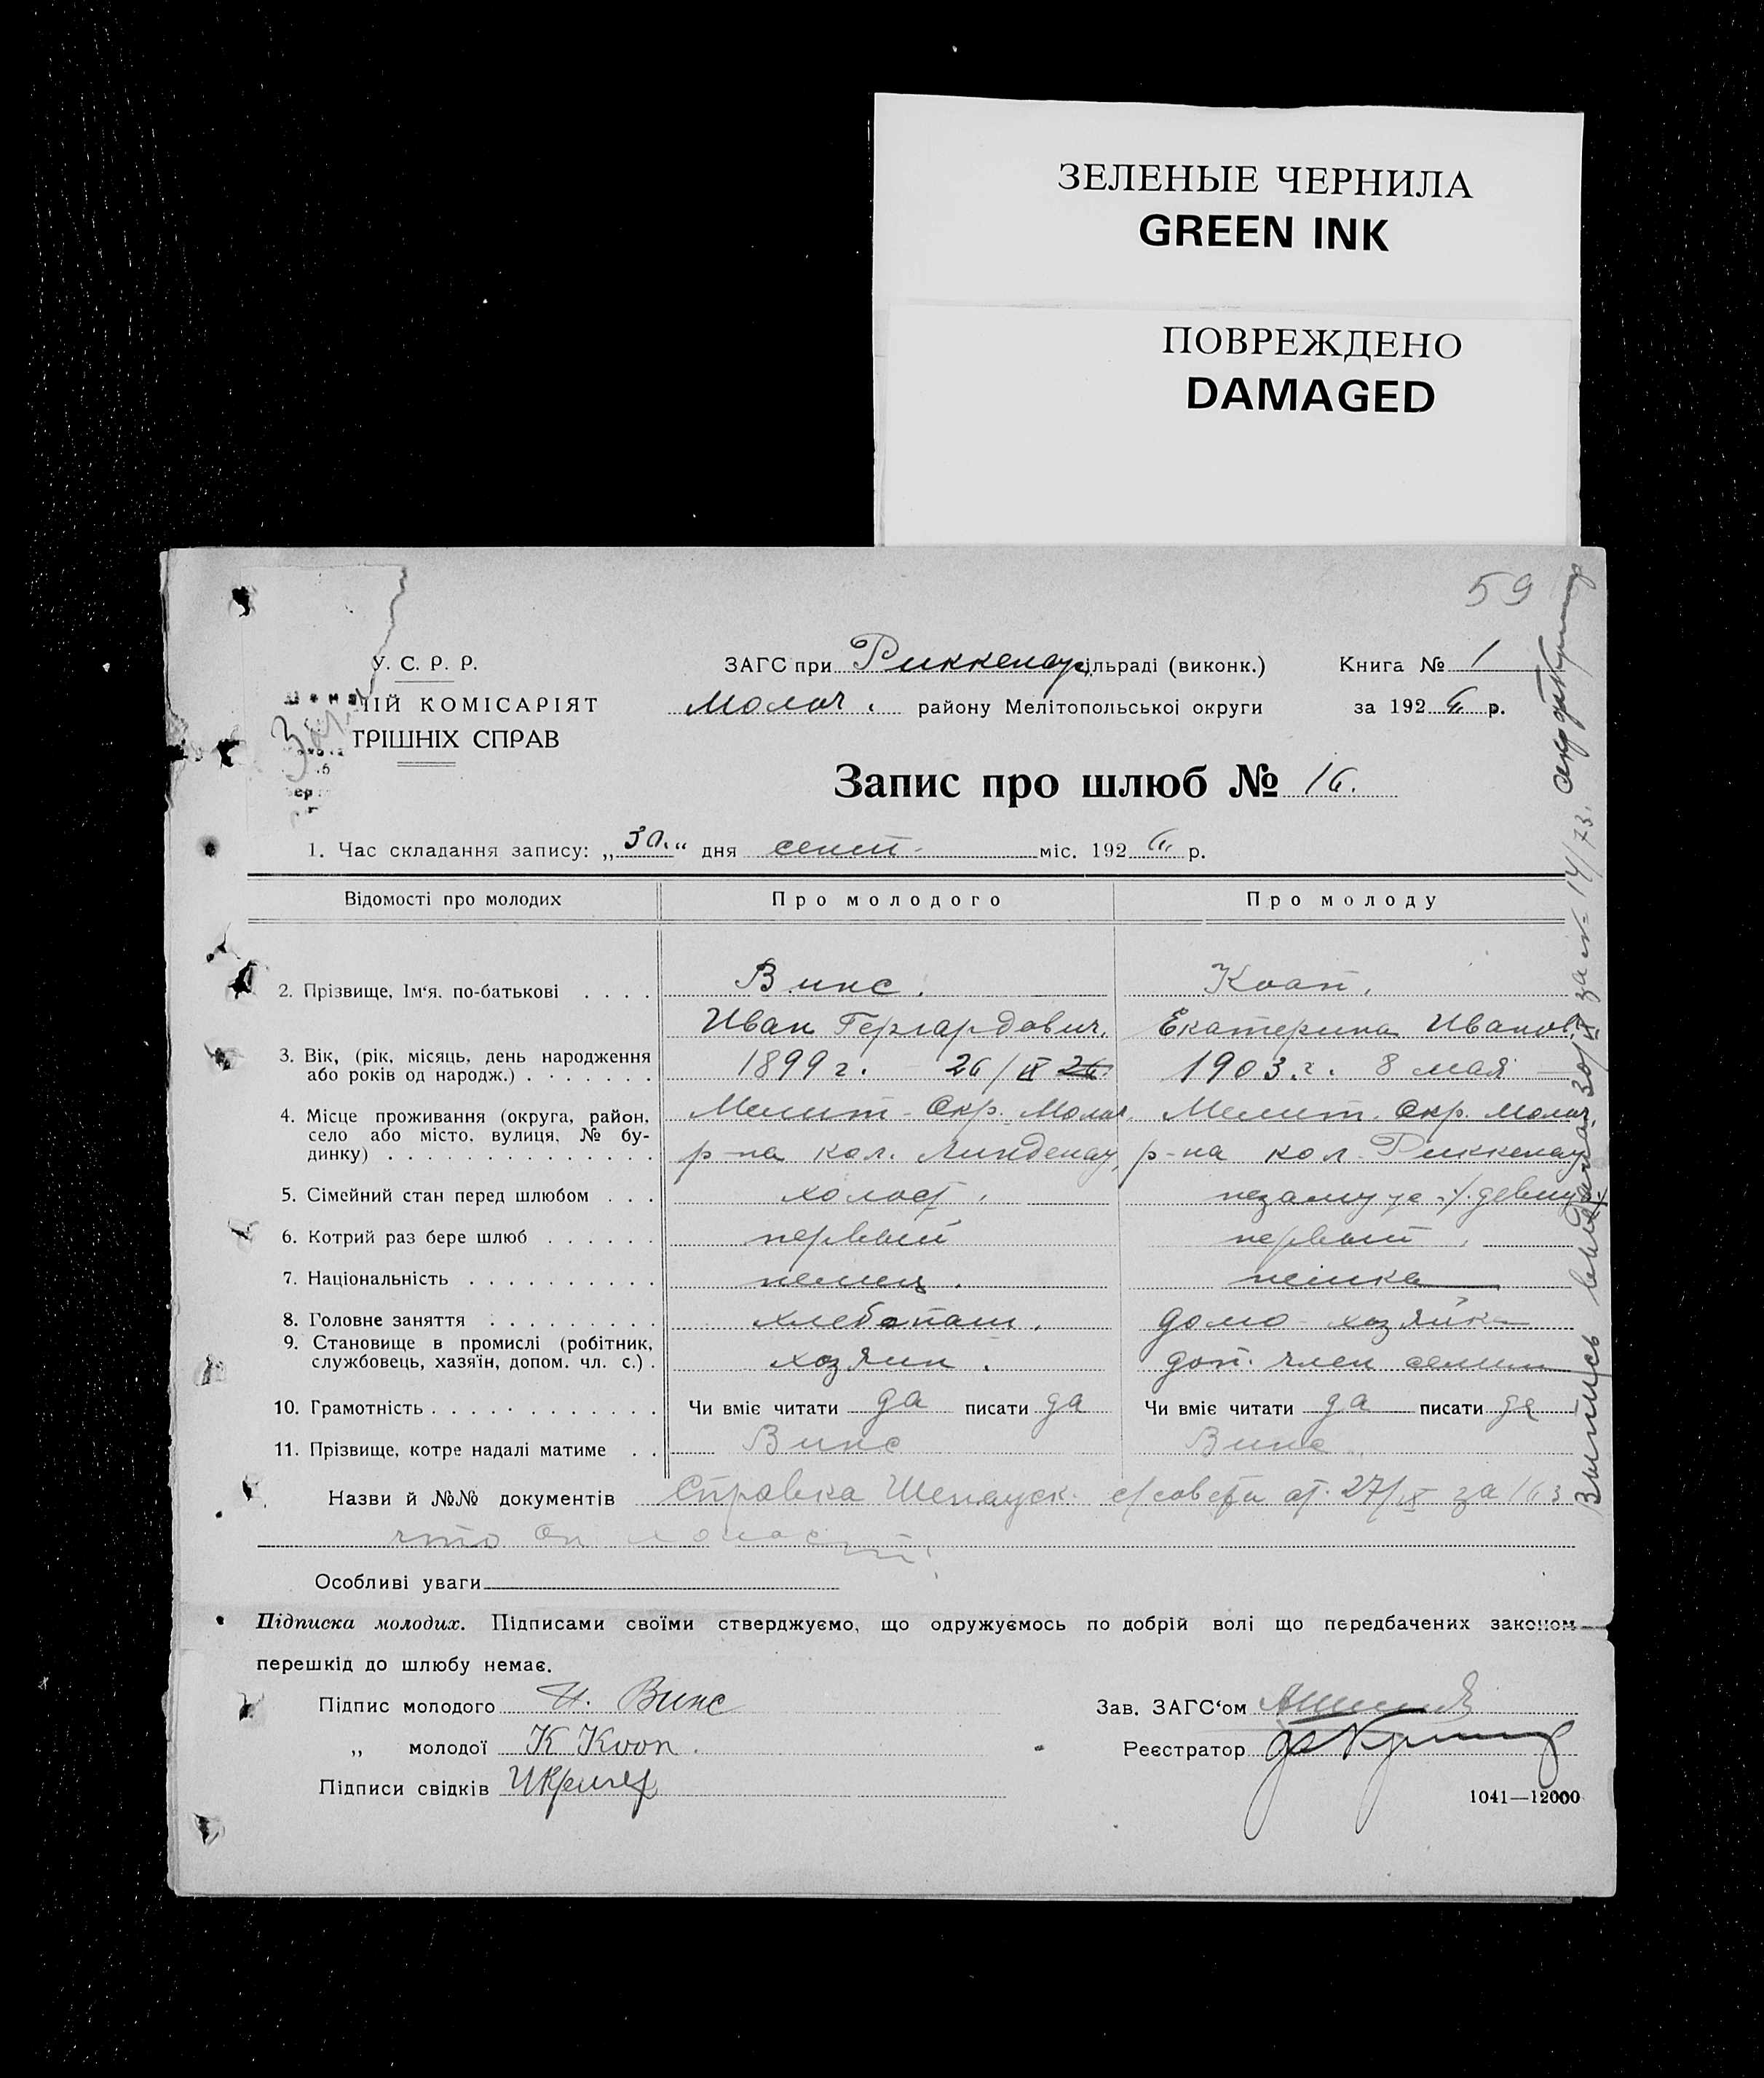 ЗЕЛЕНЫЕ ЧЕРНИЛА
GREEN INK
ПОВРЕЖДЕНО
DAMAGED
59
У. С. Р. Р.
ІЙ КОМІСАРІЯТ
ТРІШНІХ СПРАВ
ЗАГС при Риккенау сільраді (виконк.) Книга № 1
Молоч. району Мелітопольської округи за 1926 р.
Запис про шлюб № 16.
1. Час складання запису: „30“ дня сент- міс. 1926 р.
Відомості про молодих Про молодого Про молоду
2. Прізвище, Ім‘я, по-батькові . . . . Винс. Кооп.
Иван Гергардович. Екатерина Иванов.
3. Вік, (рік, місяць, день народження або років од народж.) . . . . . . 1899 г. 26/IX 26 1903 г. 8 мая
4. Місце проживання (округа, район, село або місто, вулиця, № будинку) . . . . . . . . . . . . . . Мелит-Окр. Молоч. Мелит. Окр. Молоч.
р-на кол. Линденау, р-на кол. Риккенау
5. Сімейний стан перед шлюбом . . . холост. незамуж. /девиц/
6. Котрий раз бере шлюб . . . . . . первый первый
7. Національність . . . . . . . . . . немец. немка
8. Головне заняття . . . . . . . . . хлебопаш. домо-хозяйка
9. Становище в промислі (робітник, службовець, хазяїн, допом. чл. с.) . хозяин. доп. член семьи
10. Грамотність . . . . . . . . . . . . Чи вміє читати да писати да Чи вміє читати да писати да
11. Прізвище, котре надалі матиме . . Винс Винс
Назви й №№ документів Справка Шенауск. с/совета от 27/IX за 163
что он холост.
Особливі уваги
Підписка молодих. Підписами своїми стверджуємо, що одружуємось по добрій волі що передбачених законом
перешкід до шлюбу немає.
Підпис молодого И. Винс Зав. ЗАГС‘ом
„ молодої К Кооп. Реєстратор
Підписи свідків
1041—12000
Выпись выдана 30/IX за № 14/73.